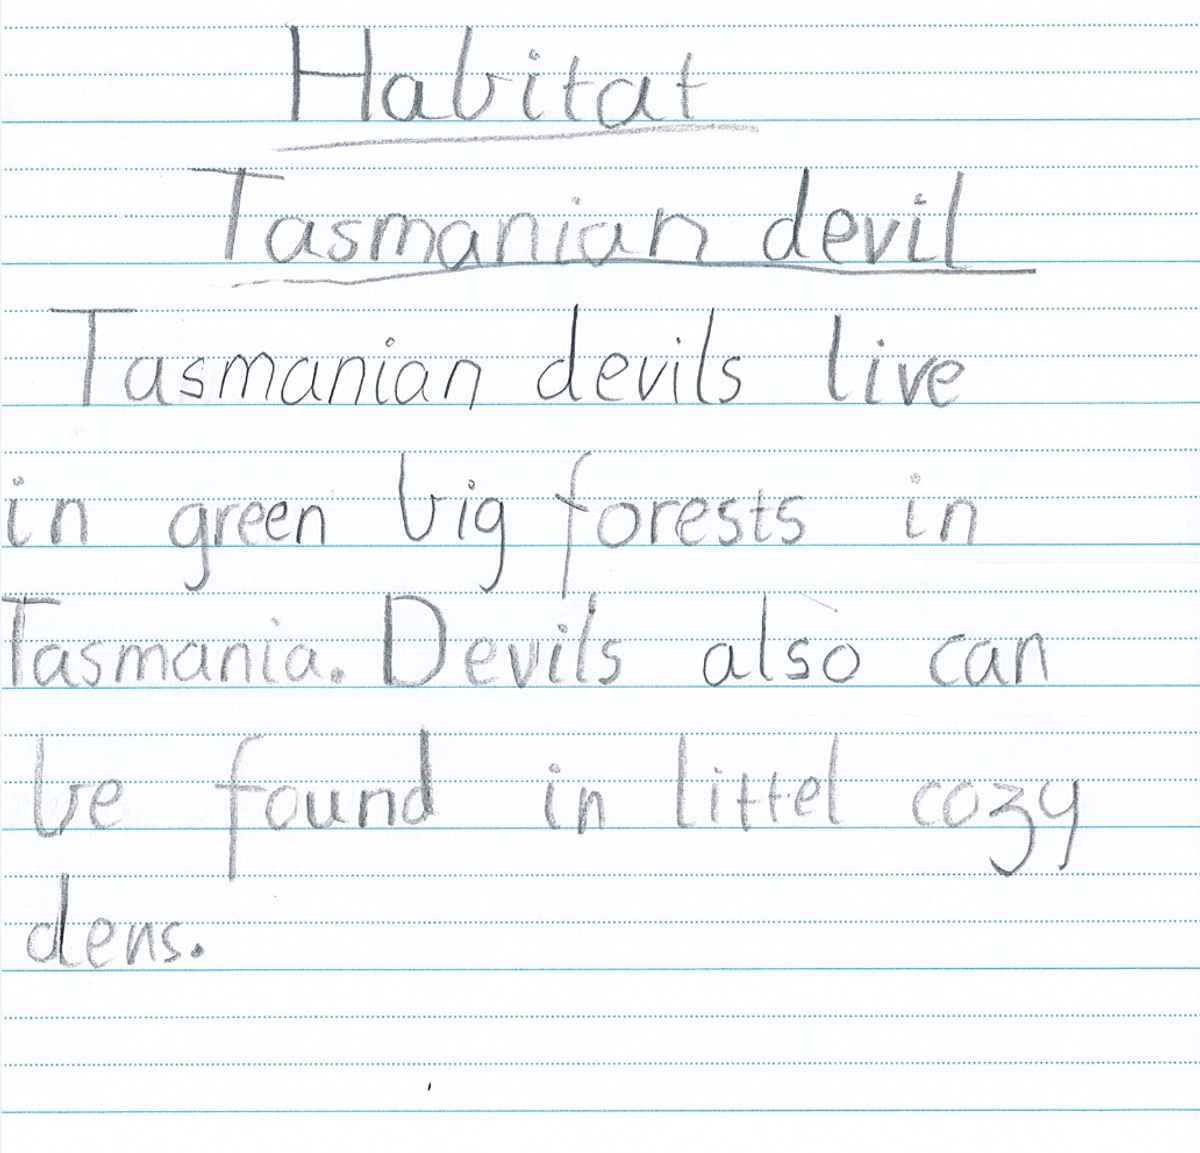 Habitat
Tasmanian devil
Tasmanian devils live
in green big forests in
Tasmania. Devils also can
be found in littel cozy
dens.